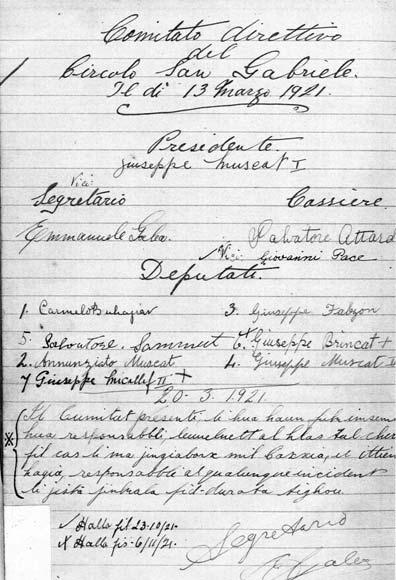 Comitato direttivo
del
Circolo San Gabriele.
Il di 13 Marzo 1921.
Presidente.
Giuseppe Muscat I
Vici
Segretario Cassiere.
Emmanuele Galea. Salvatore Attard
✓ Vici Giovanni Pace
Deputati.
1. Carmelo Buhagiar 3. Giuseppe Fabzon
5. Salvatore Sammut 6. x Giuseppe Brincat +
2. Annunziato Muscat 4. Giuseppe Muscat II
7 Giuseppe Micallef II +
20-3.1921.
Il Cumitat presenti, li hua haun fuk imsemmi
hua responsabbli, al hlas tal
fil cas li ma jingiaborx mil Caxxa, u
responsabbli al qualunque incident
li jista jinkala fid-durata tighou.
✓ Halla fil 23-10/21-
x Halla fis-6/11/21-
Segretario
E Galea